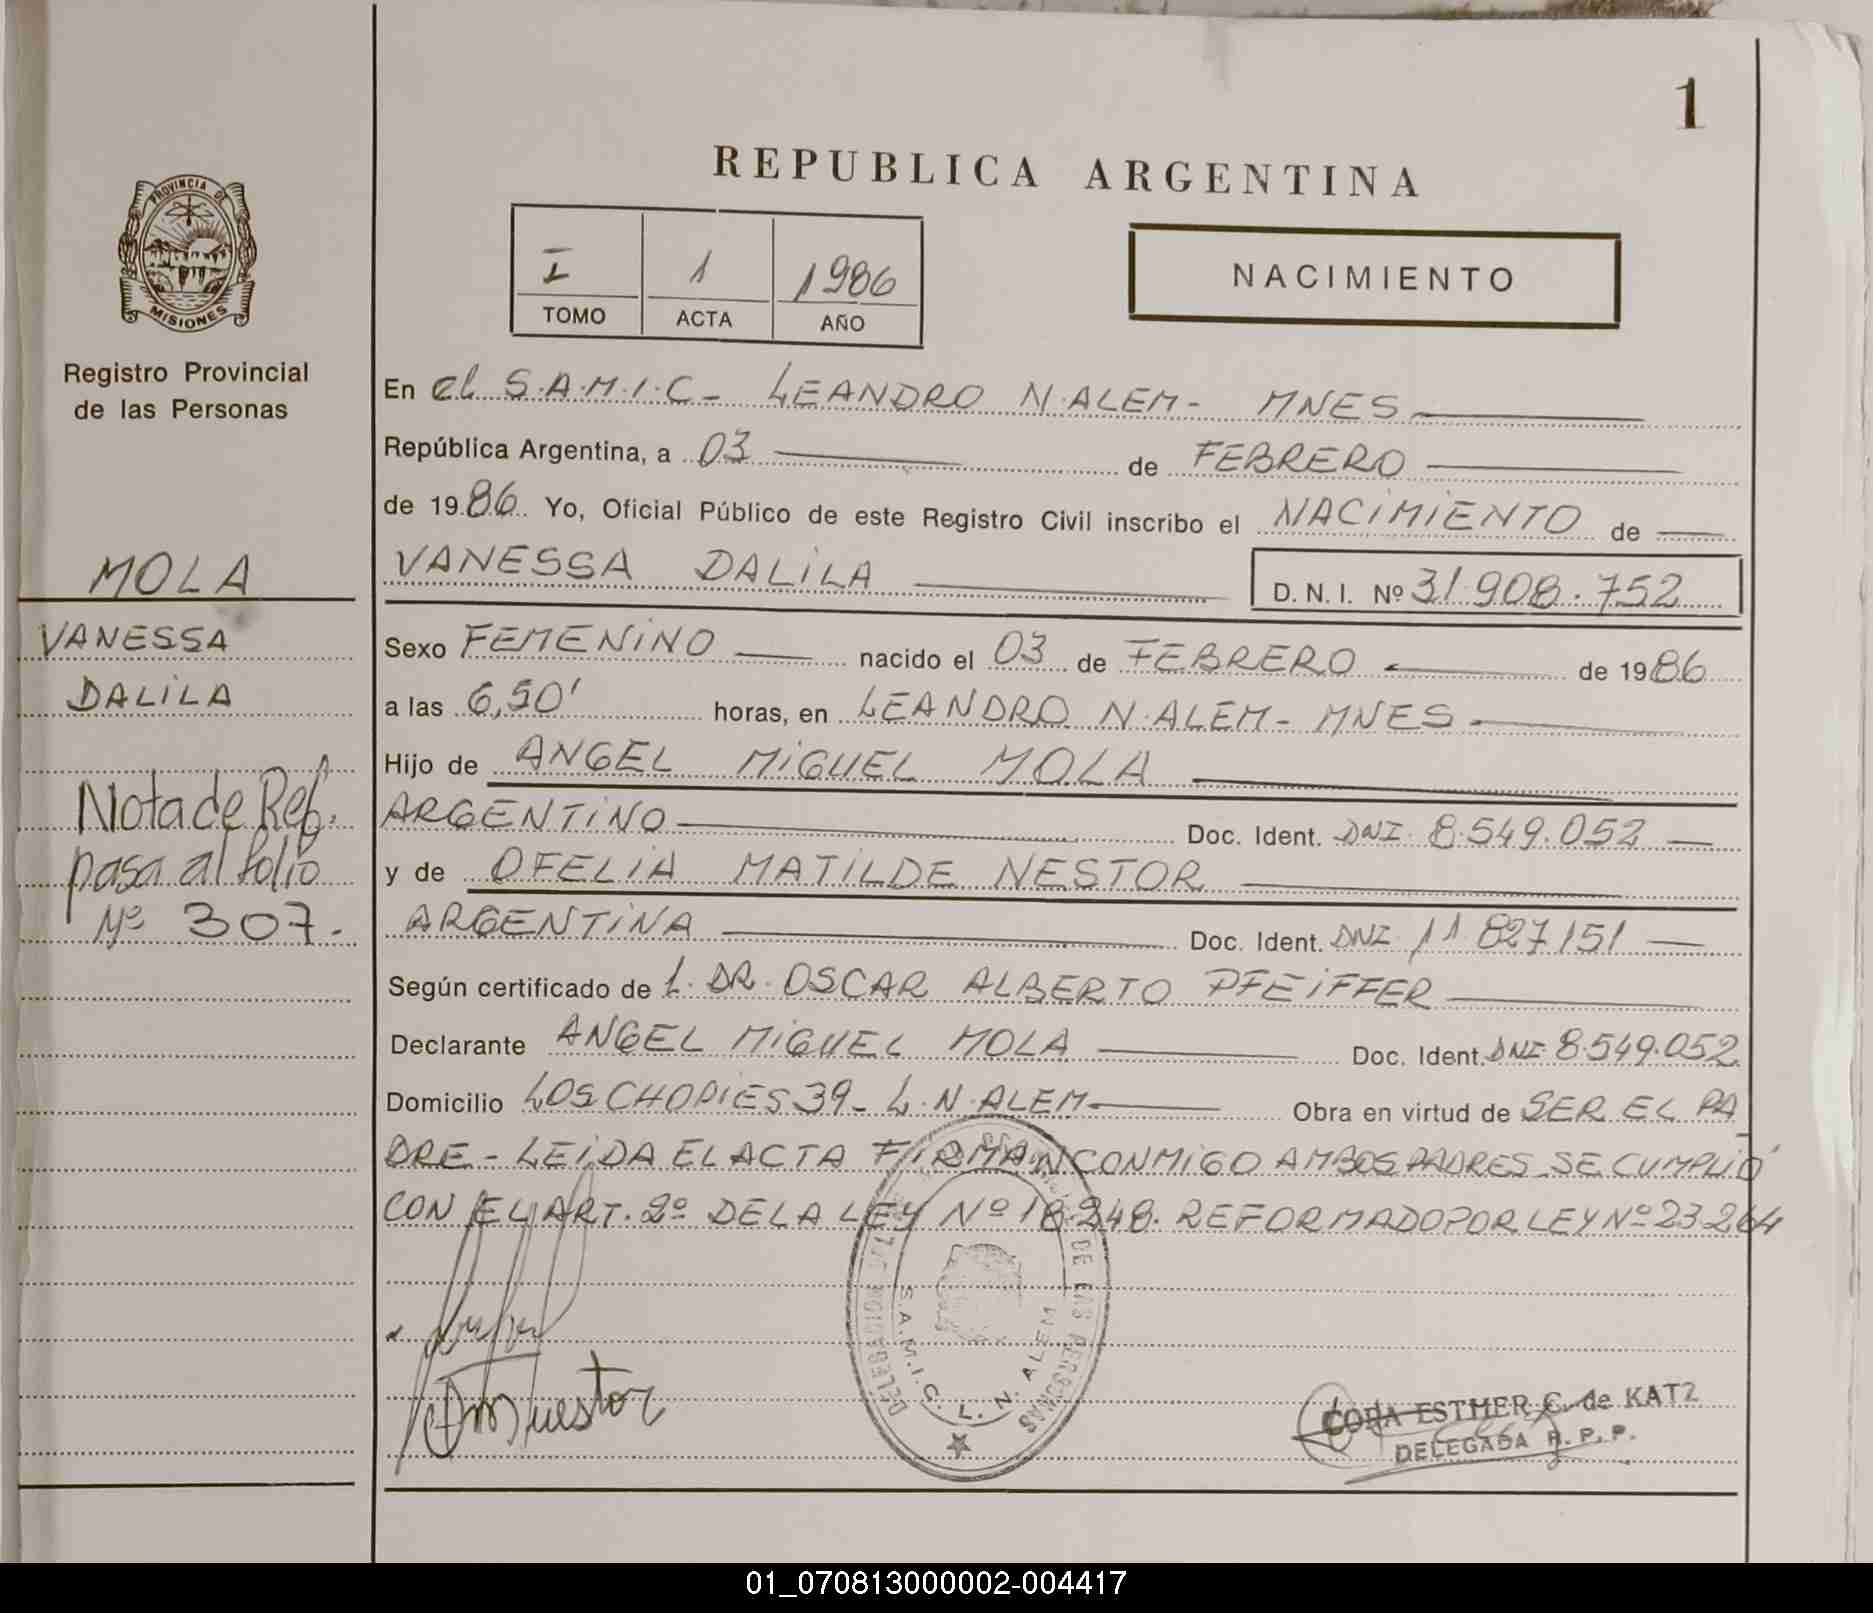 1
REPUBLICA ARGENTINA
PROVINCIA DE
MISIONES
Registro Provincial
de las Personas
I 1 1986
TOMO ACTA AÑO
NACIMIENTO
En el S.A.M.I.C- LEANDRO N.ALEM- MNES
República Argentina, a 03 de FEBRERO
de 1986 Yo, Oficial Público de este Registro Civil inscribo el NACIMIENTO de
VANESSA DALILA D. N. I. Nº 31.908.752
MOLA
VANESSA
DALILA
Nota de Ref.
pasa al folio
Nº 307.
Sexo FEMENINO nacido el 03 de FEBRERO de 1986
a las 6,50' horas, en LEANDRO N.ALEM- MNES
Hijo de ANGEL MIGUEL MOLA
ARGENTINO Doc. Ident. DNI 8.549.052
y de OFELIA MATILDE NESTOR
ARGENTINA Doc. Ident. DNI 11 827151
Según certificado de L. DR. OSCAR ALBERTO PFEIFFER
Declarante ANGEL MIGUEL MOLA Doc. Ident. DNI 8.549.052
Domicilio LOS CHOPIES 39- L.N.ALEM Obra en virtud de SER EL PA
DRE - LEIDA EL ACTA FIRMAN CONMIGO AMBOS PADRES SE CUMPLIO
CON EL ART. 2º DE LA LEY Nº 18.248. REFORMADO POR LEY Nº 23.264
DE LAS PERSONAS
S.A.M.I.C. L. N. ALEM
CORA ESTHER C. de KATZ
DELEGADA R. P. P.
01_070813000002-004417